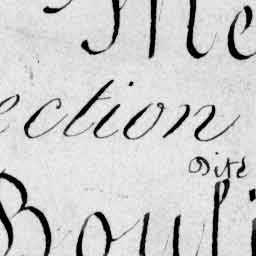 Me
ection
Dité
Bouli